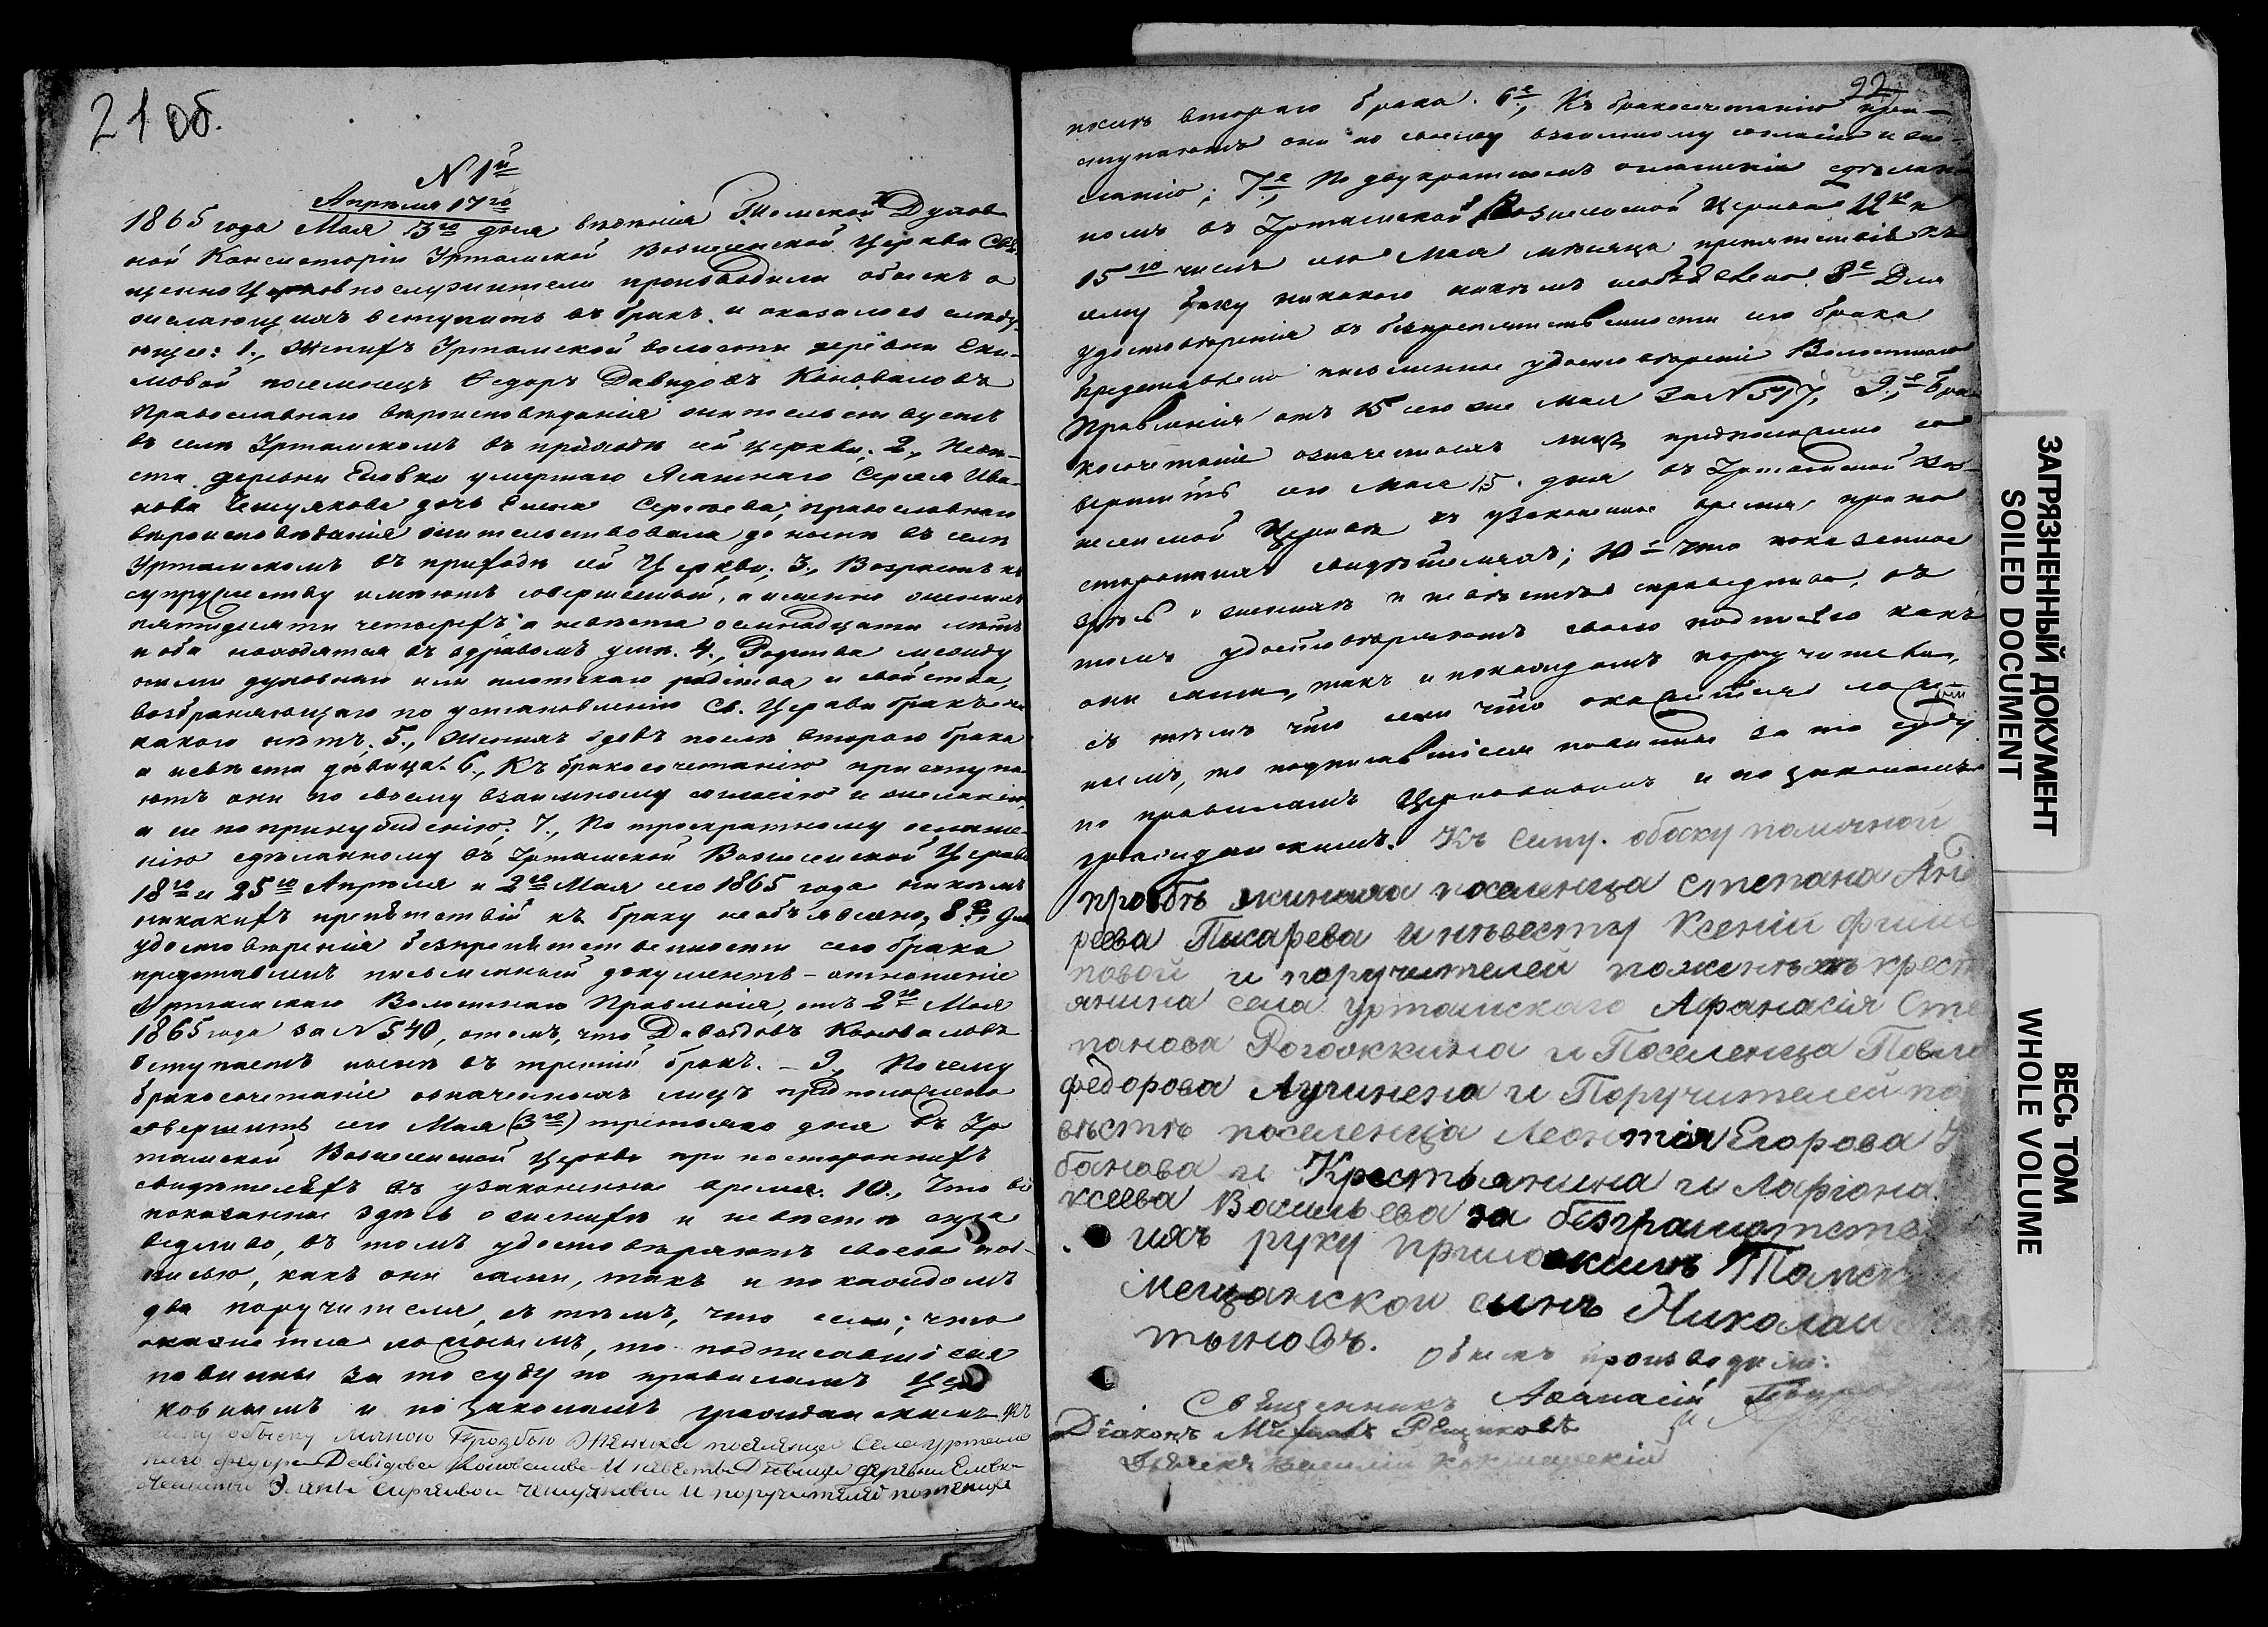 21 об.
N 1й
Апреля 17го
1865 года Мая 3го дня вѣдѣнія Томской Духов
ной Консисторіи Уртамской Вознесенской Церкви Свя
щенноЦерковнослужители производили обыскъ о
желающихъ вступить въ бракъ и оказалось слѣду
ющее: 1., Женихъ Уртамской волости деревни Еки-
мовой поселенецъ Ѳедоръ Давидовъ Коноваловъ
Православнаго вѣроисповѣданія жительствуетъ
въ селѣ Уртамскомъ въ приходѣ сей церкви; 2., Невѣ-
ста деревни Еловки умершаго Ясашнаго Сергея Ива-
нова Чешуякова дочь Елена Сергеева; православнаго
вѣроисповѣданія жительствовала до нынѣ въ селѣ
Уртамскомъ въ приходѣ сей Церкви; 3., Возрастъ къ
супружеству имѣютъ совершенный, а именно женихъ
пятидесяти четырехъ а невѣста осмнадцати лѣтъ
и оба находятся въ здравомъ умѣ. 4., Родства между
ними духовнаго или плотскаго родства и свойства,
возбраняющаго по установленію Св. Церкви бракъ ни
какого нѣтъ. 5., Женихъ вдовъ послѣ втораго брака
а невѣста дѣвица. 6., Къ бракосочетанію приступа
ютъ они по своему взаимному согласію и желанію,
а не по принужденію; 7., По троекратному оглаше
нію сдѣланному въ Уртамской Вознесенской Церкви
18го и 25го Апреля и 2го Мая сего 1865 года никѣмъ
никакихъ препятствій къ браку не объявлено, 8е., Для
удостовѣренія безпрепятственности сего брака
представленъ письменный документъ - отношеніе
Уртамскаго Волостнаго Правленія, отъ 2го Мая
1865 года за N 540, о томъ, что Давыдовъ Коноваловъ
вступаетъ нынѣ въ третій бракъ. - 9., Посему
бракосочетаніе означенныхъ лицъ предположено
совершить сего Мая (3го) третьяго дня въ Ур
тамской Вознесенской церкви при постороннихъ
свидѣтеляхъ въ узаконенное время. 10., Что все
показанное здѣсь о женихѣ и невѣстѣ спра
ведливо, въ томъ удостовѣряютъ своею под-
писью, какъ они сами, такъ и по каждомъ
два поручителя, съ тѣмъ, что если, что
окажется ложнымъ, то подписавшіеся
повинны за то суду по правиламъ Цер
ковнымъ и по законамъ гражданскимъ. Къ
сему обыску личною Прозбою Жениха поселенца Села Уртамс
каго Федора Давідова Коновалова И невѣсты Дѣвицы деревни Еловки
Ясашной Елены Сергѣевой Чешуяковой И поручителей по женихѣ
22
послѣ втораго брака. 6е., Къ бракосочетанію при-
ступаютъ они по своему взаимному согласію и же-
ланію; 7е., По двукратномъ оглашеніи сдѣлан-
номъ въ Уртамской Вознесенской Церкви 12го и
15го числъ сего Мая мѣсяца препятствія къ
сему браку никакого никѣмъ необъявлено. 8е Для
удостовѣренія въ безпрепятственности сего брака
Представлено письменное удостовѣреніе Волостнаго
Правленія отъ 15 сего же Мая за N 517, 9е., Бра-
косочетаніе означенныхъ лицъ предположено со
вершить сего Мая 15. дня въ Уртамской Воз-
несенской Церкви въ узаконенное время, при по
стороннихъ свидѣтеляхъ; 10е Что показанное
здѣсь о женихѣ и невѣстѣ справедливо, въ
томъ удостовѣряютъ своею подписью какъ
они сами, такъ и по каждомъ поручители,
съ тѣмъ что если что окажется лож
нымъ, то подписавшіеся повинны за то суду
по правиламъ Церковнымъ и по законамъ
гражданскимъ. Къ сему обоску полично́й
прозбѣ жениха поселенца Степана Анд
реева Писарева и нѣвесты Ксеніи Фили
повой и поручителей поженихѣ крест
янина села уртамскаго Афанасія Сте
панова Рогожкина и Поселенца Павла
федорова Лучинена и Поручителей по
вѣстѣ поселенца Леонтія Егорова
банова и Крестьянина и Ларіона
ксеева Васильева за безграмотств
ихъ руку приложилъ Томск
Мещанской сынъ Николай
тыновъ. Обыскъ производили:
Священникъ Аѳанасій
Діаконъ Михаилъ Рещиковъ
Дьячекъ Василій
ЗАГРЯЗНЕННЫЙ ДОКУМЕНТ
SOILED DOCUMENT
ВЕСЬ ТОМ
WHOLE VOLUME